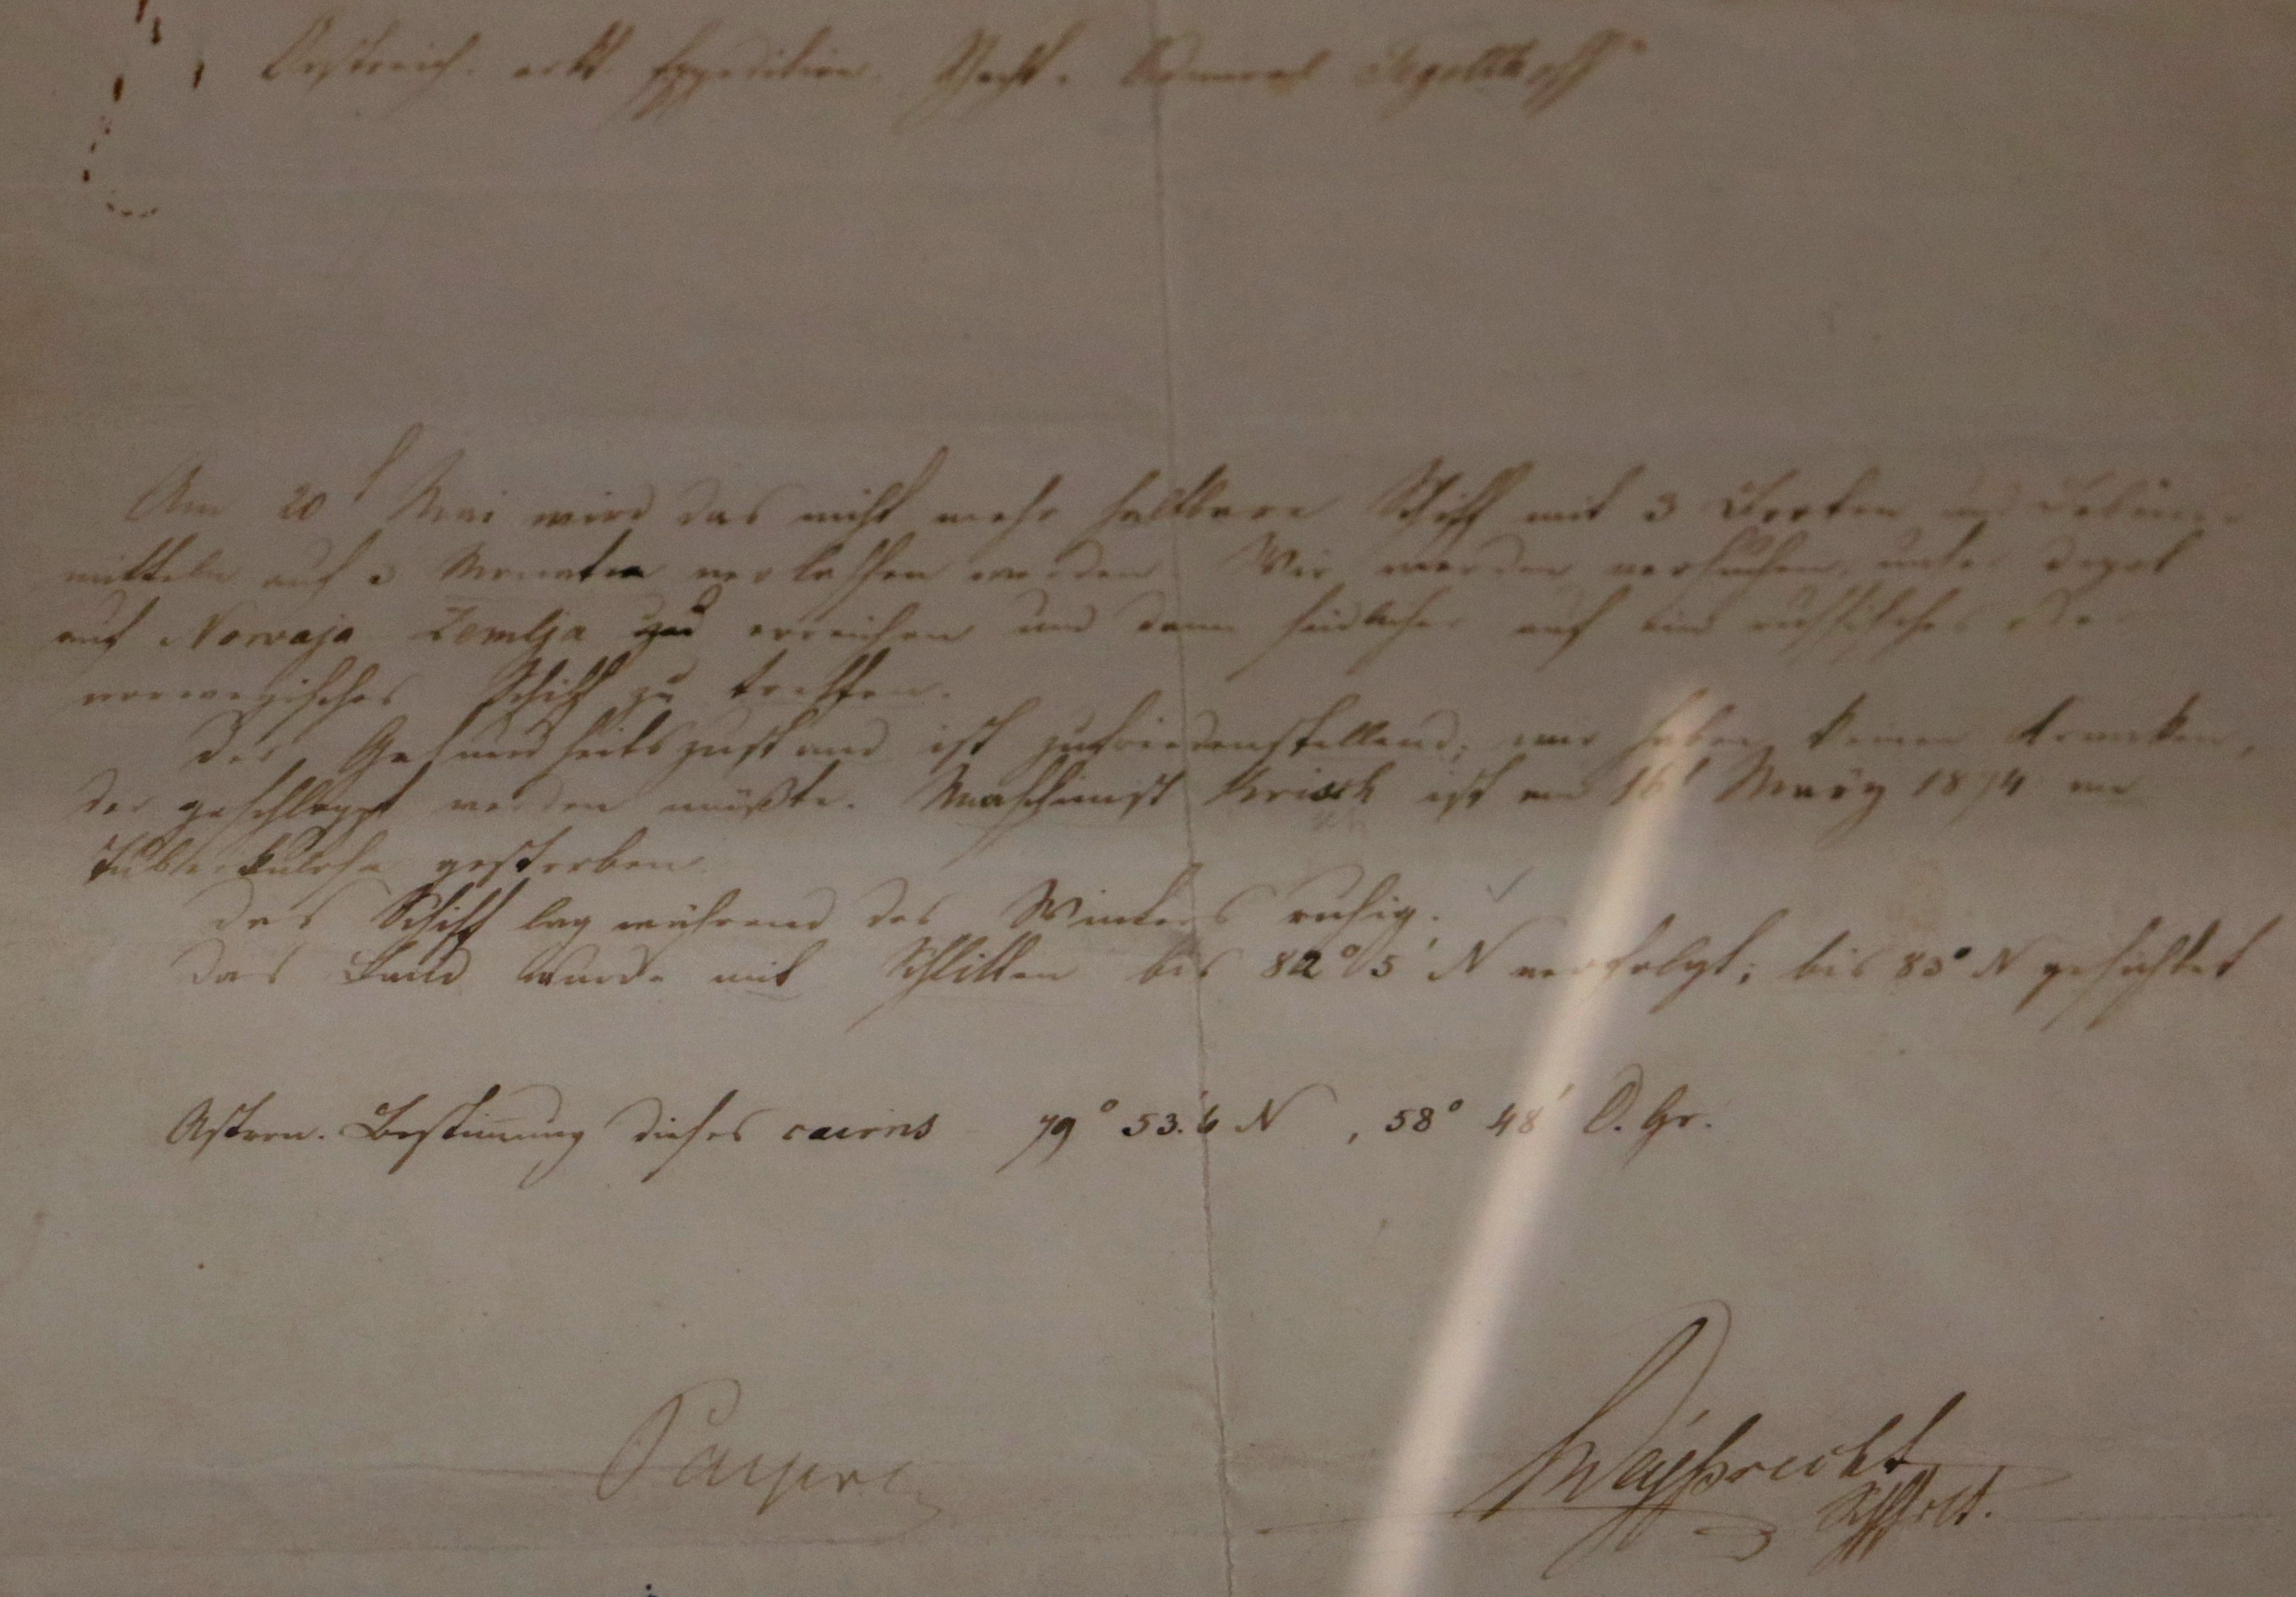 Oestreich. arkt. Expedition. Yacht „Admiral Tegetthoff"
Am 20t Mai wird das nicht mehr haltbare Schiff mit 3 Booten und Lebens-
mitteln auf 3 Monaten verlassen werden. Wir werden versuchen, unser Depot
auf Nowaja Zemlja zu erreichen und dann südlicher auf ein russisches oder
norwegisches Schiff zu treffen.
Der Gesundheitszustand ist zufriedenstellend; wir haben keinen Kranken,
der geschleppt werden müßte. Maschinist Krisch ist am 16t März 1874 an
Tuberkulose gestorben.
Das Schiff lag während des Winters ruhig.
Das Land wurde mit Schlitten bis 82° 5' N verfolgt; bis 83° N gesichtet
Astron. Bestimmung dieses cairns 79° 53.'6 N, 58° 48' O. Gr.
Payer
Weyprecht